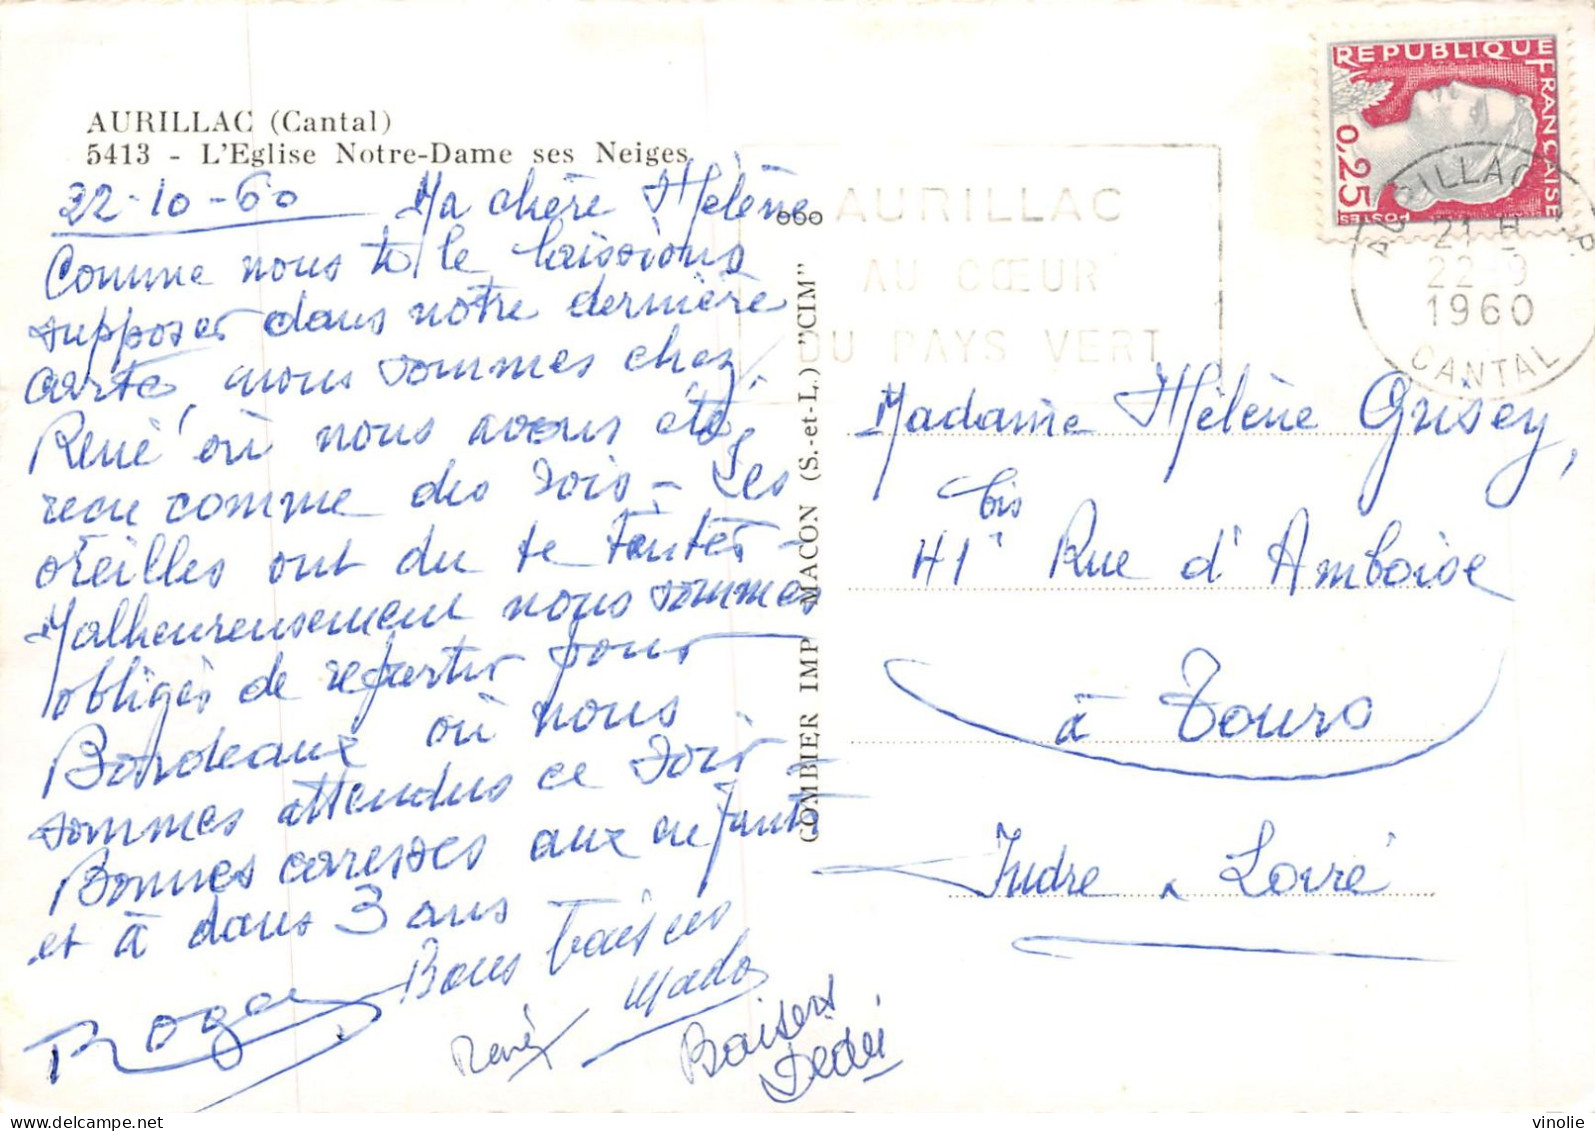 AURILLAC (Cantal)
5413 - L'Eglise Notre-Dame ses Neiges
22-10-60 Ma chère Hélène
Comme nous te le laissions
supposer dans notre dernière
carte, nous sommes chez
René où nous avons été
recu comme des rois - Les
oreilles ont du te tinter -
Malheureusement nous sommes
obligés de repartir pour
Bordeaux où nous
sommes attendus ce soir -
Bonnes caresses aux enfants
et à dans 3 ans
Roger
Bons baisers
Mado
René
Baisers
Dédé
COMBIER IMP MACON (S.-et-L.) "CIM"
AURILLAC
AU CŒUR
DU PAYS VERT
REPUBLIQUE FRANCAISE
0,25
POSTES
AURILLAC R.P.
21 H
22-9
1960
CANTAL
Madame Hélène Grisey,
41 bis Rue d'Amboise
à Tours
Indre & Loire
vinolie